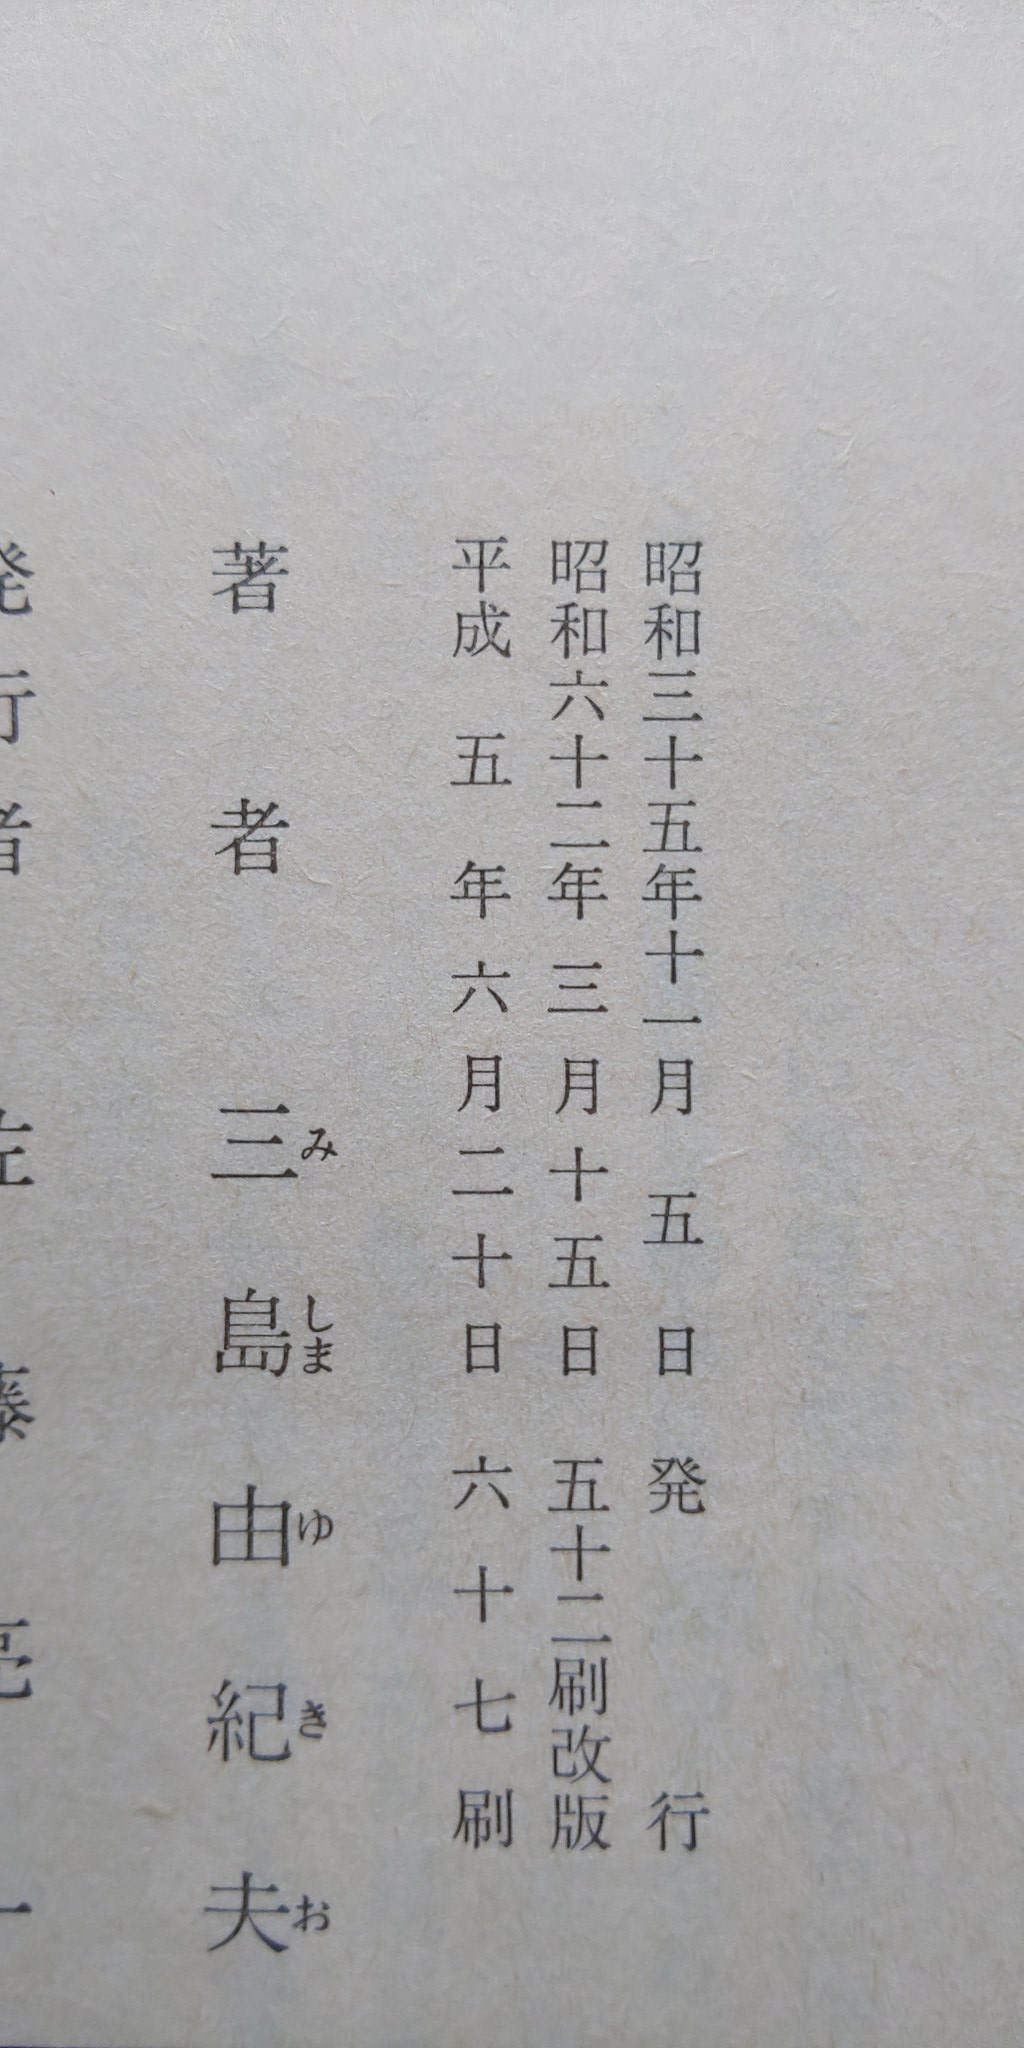 昭和三十五年十一月五日発行
昭和六十二年三月十五日五十二刷改版
平成五年六月二十日六十七刷
著者 三島由紀夫
み しま ゆ き お
発行者 佐藤亮一